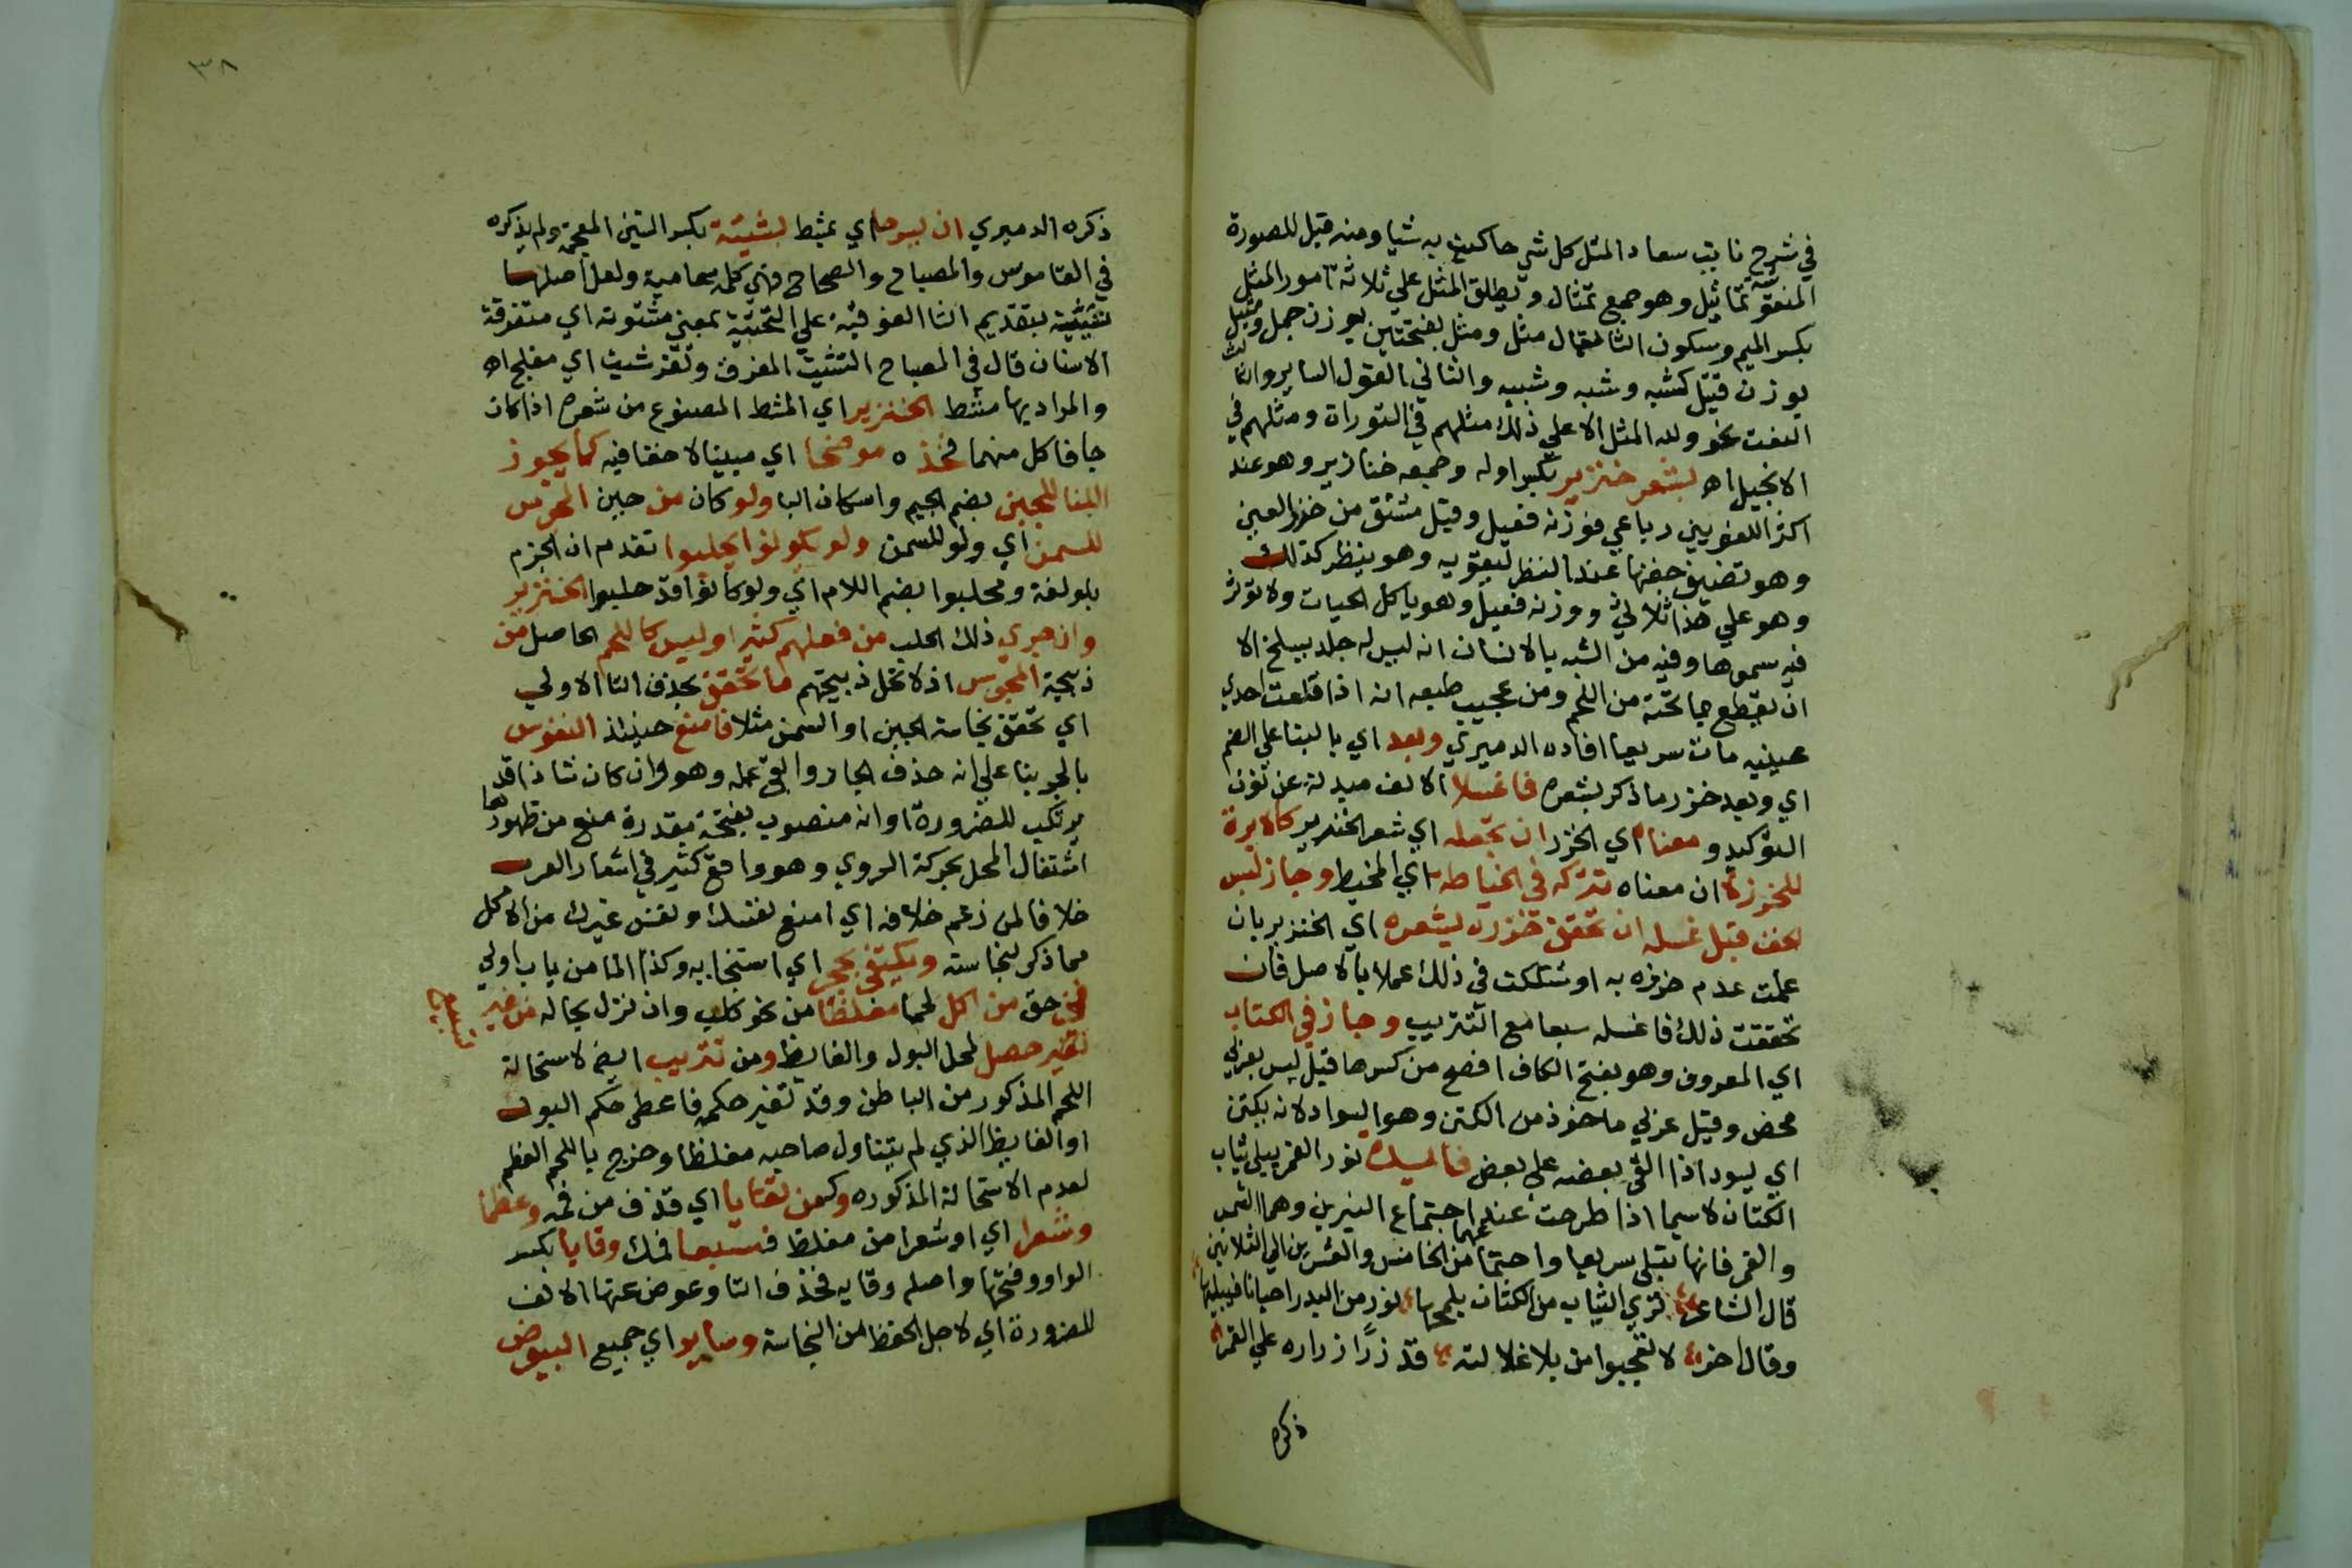 في شرح نابت سعاد المثل كل شي حاكيت به شيا ومنه قيل للصورة
المنقوشة تماثيل وهو جمع تمثال ويطلق المثل علي ثلاثة امور المثل
بكسر الميم وسكون الثا يقال مثل ومثل بفتحتين بوزن جمل ومثيل
بوزن قتيل كشبه وشبه وشبيه والثاني القول الساير والثالث
النعت نحو ولله المثل الاعلي ذلك مثلهم في التوراة ومثلهم في
الانجيل اه بشعر خنزير بكسر اوله وجمعه خنازير وهو عند
اكثر اللغويين رباعي فوزنه فعليل وقيل مشتق من خزر العين
وهو تضييق جفنها عند النظر ليقويه وهو ينظر كذلك
وهو علي هذا ثلاثي ووزنه فنعيل وهو ياكل الحيات ولا توثر
فيه سمومها وفيه من الشبه بالانسان انه ليس له جلد يسلخ الا
ان يقطع بما تحته من اللحم ومن عجيب طبعه انه اذا قلعت احدي
عينيه مات سريعا افاده الدميري وبعد اي بالبنا علي الضم
اي وبعد خرز ما ذكر بشعره فاغسلا الالف مبدلة عن نون
التوكيد ومعناه اي الخرز ان تجعله اي شعر الخنزير كالابرة
للخرزة ان معناه تتركه في الخياطه اي المخيط وجاز لبس
الخف قبل غسله ان تحقق خرزه بشعره اي الخنزير بان
علمت عدم خرزه به او شككت في ذلك عملا بالاصل فان
تحققت ذلك فاغسله سبعا مع التتريب وجاز في الكتاب
اي المعروف وهو بفتح الكاف افصح من كسرها قيل ليس بعربي
محض وقيل عربي ماخوذ من الكتن وهو السواد لانه يكتن
اي يسود اذا القي بعضه علي بعض نور القمر يبلي ثياب
الكتان لاسيما اذا طرحت عند اجتماع النيرين وهما الشمس
والقمر فانها تبلي سريعا واجتماعهما من الخامس والعشرين الي الثلاثين
قال الشاعر تري الثياب من الكتان يلمحها نور من البدر احيانا فيبليها
وقال اخر لا تعجبوا من بلا غلالته قد زر ازراره علي القمر
ذكره
٣٨
ذكره الدميري ان لبرحا اي بمشط لشيتة بكسر الشين المعجمة ولم يذكره
في القاموس والمصباح والصحاح فهي كلمة عامية ولعل اصلها
شتيتة بتقديم التا الفوقية علي التحتية بمعني مشتوتة اي متفرقة
الاسنان قال في المصباح التشتيت المفرق وثغر شتيت اي مفلج اه
والمراد بها مشط الخنزير اي المشط المصنوع من شعره اذا كان
جافا كل منهما فخذه موضحا اي مبينا لا خفا فيه كما يجوز
لنا الجبن بضم الجيم واسكان البا ولو كان من جبن المجوس
للسمن اي ولو للسمن ولو يكونوا يحلبوا تقدم ان الجزم
بلو لغة ويحلبوا بضم اللام اي ولو كانوا قد حلبوا الخنزير
وان جري ذلك الحلب من فعلهم كثيرا وليس كاللحم الحاصل من
ذبيحة المجوس اذ لا تحل ذبيحتهم ما تحقق بحذف التا الاولي
اي تحقق نجاسة الجبن او السمن مثلا فامنع حينئذ النفوس
بالجر بنا علي انه حذف الجار وابقي عمله وهو وان كان شاذا قد
يرتكب للضرورة او انه منصوب بفتحة مقدرة منع من ظهورها
اشتغال المحل بحركة الروي وهو واقع كثير في اشعار العرب
خلافا لمن زعم خلافه اي امنع نفسك ونفس غيرك من الاكل
مما ذكر لنجاسته ويكتفي بحجر اي استنجا به وكذا الما من باب اولي
في حق من اكل لحما مغلظا من نحو كلب وان نزل بحاله من غير
تغير حصل لمحل البول والغايط ومن تتريب ايضا لاستحالة
اللحم المذكور من الباطن وقد تغير حكمه فاعطي حكم البول
او الغايط الذي لم يتناول صاحبه مغلظا وخرج باللحم العظم
لعدم الاستحالة المذكوره وكمن تقايا اي قذف من فمه وعظما
وشعرا اي او شعرا من مغلظ فسبعا فمك وقايا بكسر
الواو وفتحها واصله وقاية فحذف التا وعوض عنها الالف
للضرورة اي لاجل الحفظ من النجاسة وساير اي جميع البيوض